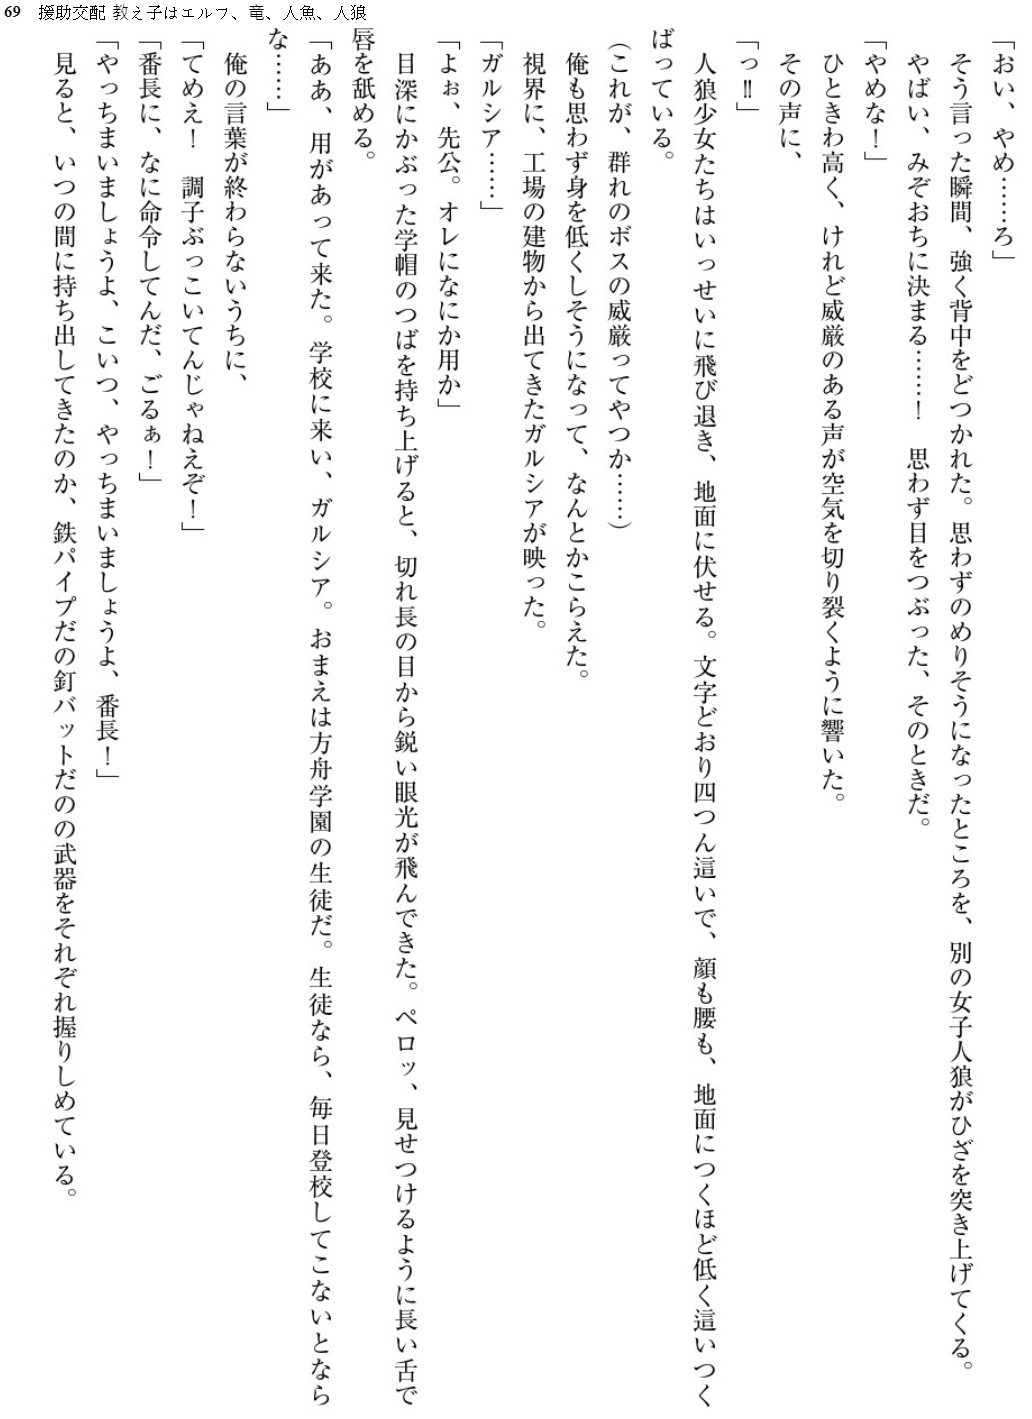 69 援助交配 教え子はエルフ、竜、人魚、人狼
「おい、やめ……ろ」
そう言った瞬間、強く背中をどつかれた。思わずのめりそうになったところを、別の女子人狼がひざを突き上げてくる。
やばい、みぞおちに決まる……！　思わず目をつぶった、そのときだ。
「やめな！」
ひときわ高く、けれど威厳のある声が空気を切り裂くように響いた。
その声に、
「っ‼」
人狼少女たちはいっせいに飛び退き、地面に伏せる。文字どおり四つん這いで、顔も腰も、地面につくほど低く這いつく
ばっている。
（これが、群れのボスの威厳ってやつか……）
俺も思わず身を低くしそうになって、なんとかこらえた。
視界に、工場の建物から出てきたガルシアが映った。
「ガルシア……」
「よぉ、先公。オレになにか用か」
目深にかぶった学帽のつばを持ち上げると、切れ長の目から鋭い眼光が飛んできた。ペロッ、見せつけるように長い舌で
唇を舐める。
「ああ、用があって来た。学校に来い、ガルシア。おまえは方舟学園の生徒だ。生徒なら、毎日登校してこないとなら
な……」
俺の言葉が終わらないうちに、
「てめえ！　調子ぶっこいてんじゃねえぞ！」
「番長に、なに命令してんだ、ごるぁ！」
「やっちまいましょうよ、こいつ、やっちまいましょうよ、番長！」
見ると、いつの間に持ち出してきたのか、鉄パイプだの釘バットだのの武器をそれぞれ握りしめている。